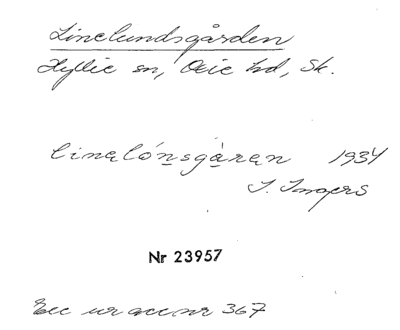 Linelundsgården
Hyllie sn, Oxie hd, Sk.
linelónsgåran 1934
I. Ingers
Nr 23957
Exc ur acc nr 367